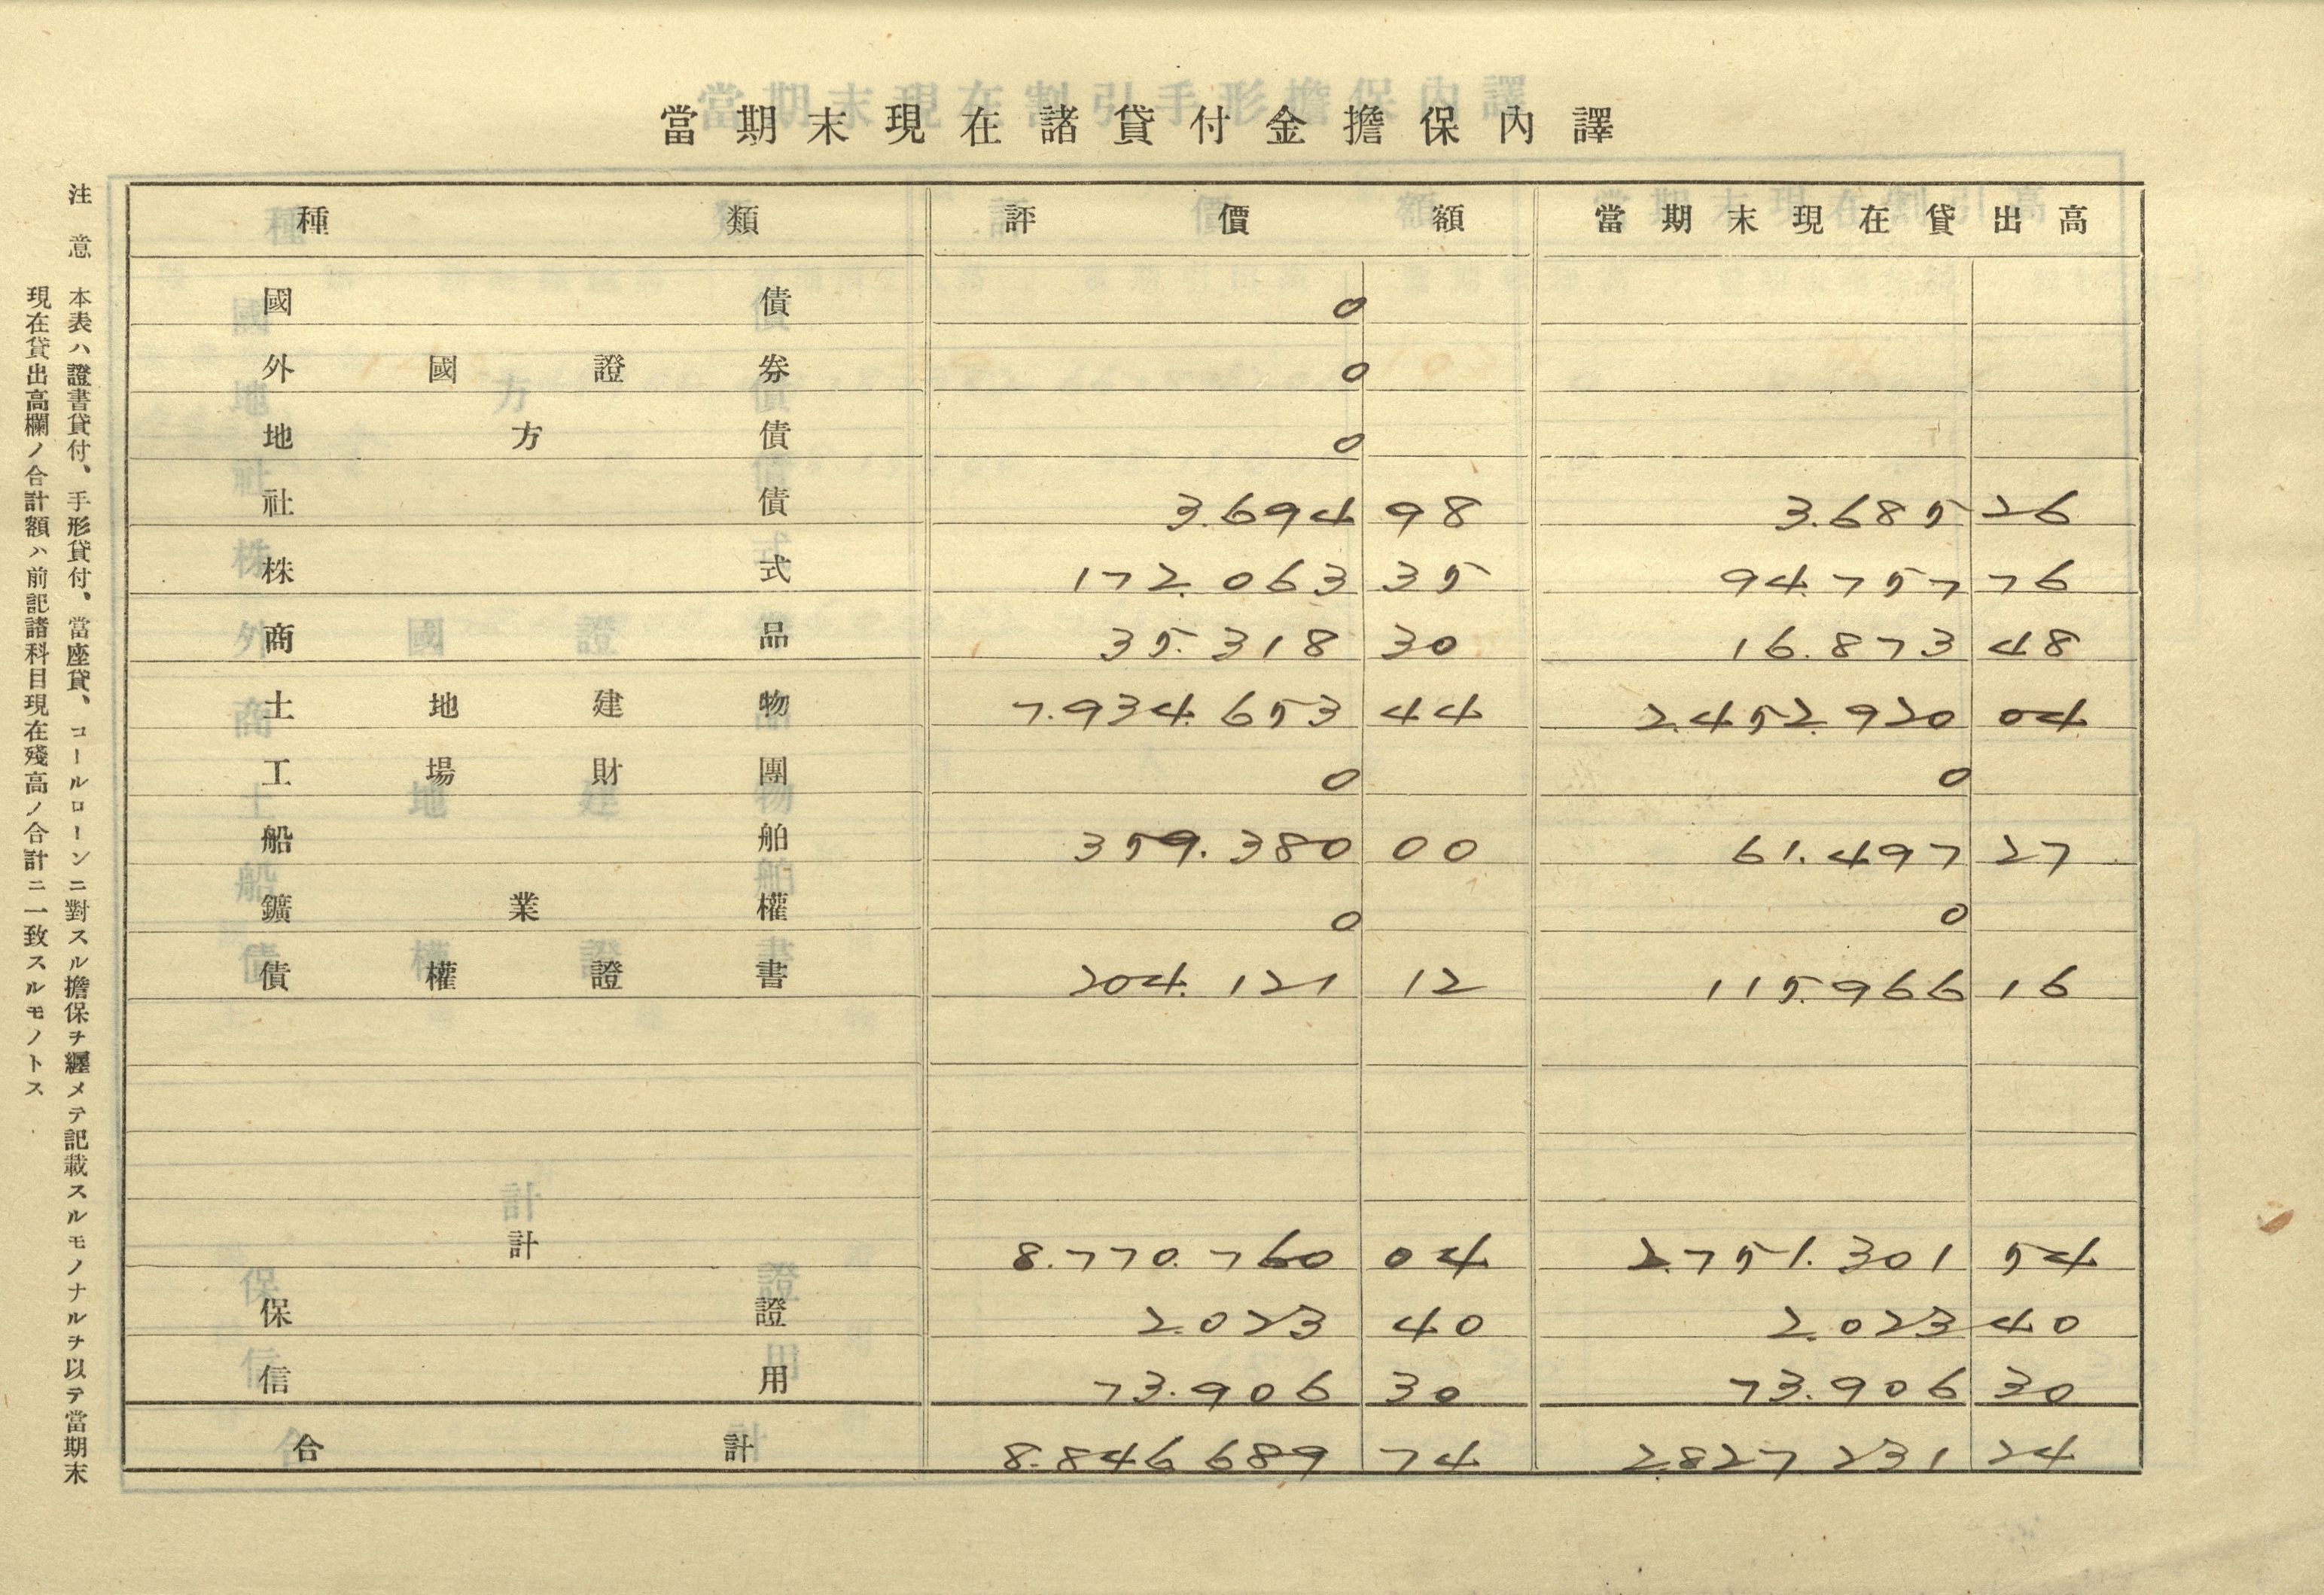 當期末現在諸貸付金擔保內譯
種類 評價額 當期末現在貸出高
國債 0
外國證券 0
地方債 0
社債 3.694 98 3.685 26
株式 172.063 35 94.757 76
商品 35.318 30 16.873 48
土地建物 7.934.653 44 2.452.920 04
工場財團 0 0
船舶 359.380 00 61.497 27
鑛業權 0 0
債權證書 204.121 12 115.966 16
計 8.770.760 04 2.751.301 54
保證 2.023 40 2.023 40
信用 73.906 30 73.906 30
合計 8.846 689 74 2.827 231 24
注意 本表ハ證書貸付、手形貸付、當座貸、コールローンニ對スル擔保ヲ纏メテ記載スルモノナルヲ以テ當期末
現在貸出高欄ノ合計額ハ前記諸科目現在殘高ノ合計ニ一致スルモノトス